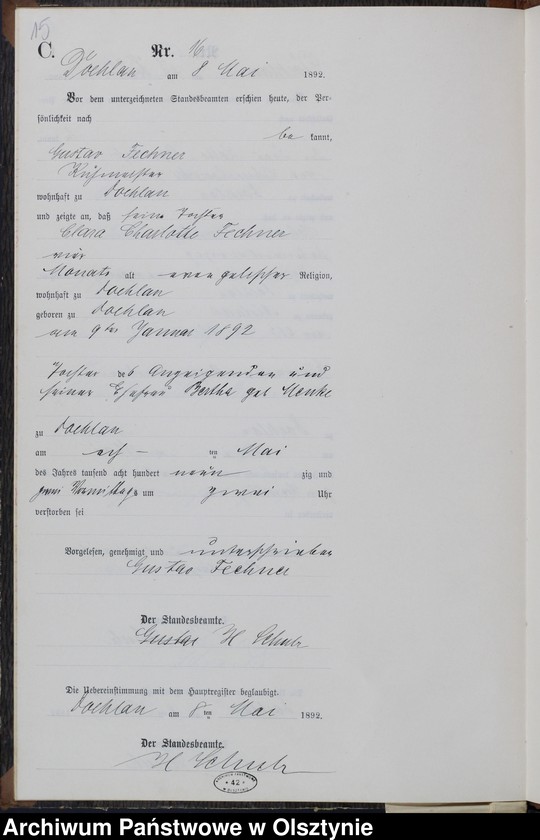 15
C.
Nr. 16
Döhlau am 8 Mai 1892.
Vor dem unterzeichneten Standesbeamten erschien heute, der Per-
sönlichkeit nach
be kannt,
Gustav Fechner
wohnhaft zu Doehlau
und zeigte an, daß seine Tochter
Clara Charlotte Fechner
vier
Monate alt evangelischer Religion,
wohnhaft zu Doehlau
geboren zu Doehlau
am 9ten Januar 1892
Tochter des Anzeigenden und
seiner Ehefrau Bertha geb Menke
zu Doehlau
am ach – ten Mai
des Jahres tausend acht hundert neun zig und
zwei Vormittags um zwei Uhr
verstorben sei
Vorgelesen, genehmigt und unterschrieben
Gustav Fechner
Der Standesbeamte.
H Schulz
Die Uebereinstimmung mit dem Hauptregister beglaubigt.
Doehlau am 8 ten Mai 1892.
Der Standesbeamte.
H Schulz
42
Archiwum Państwowe w Olsztynie